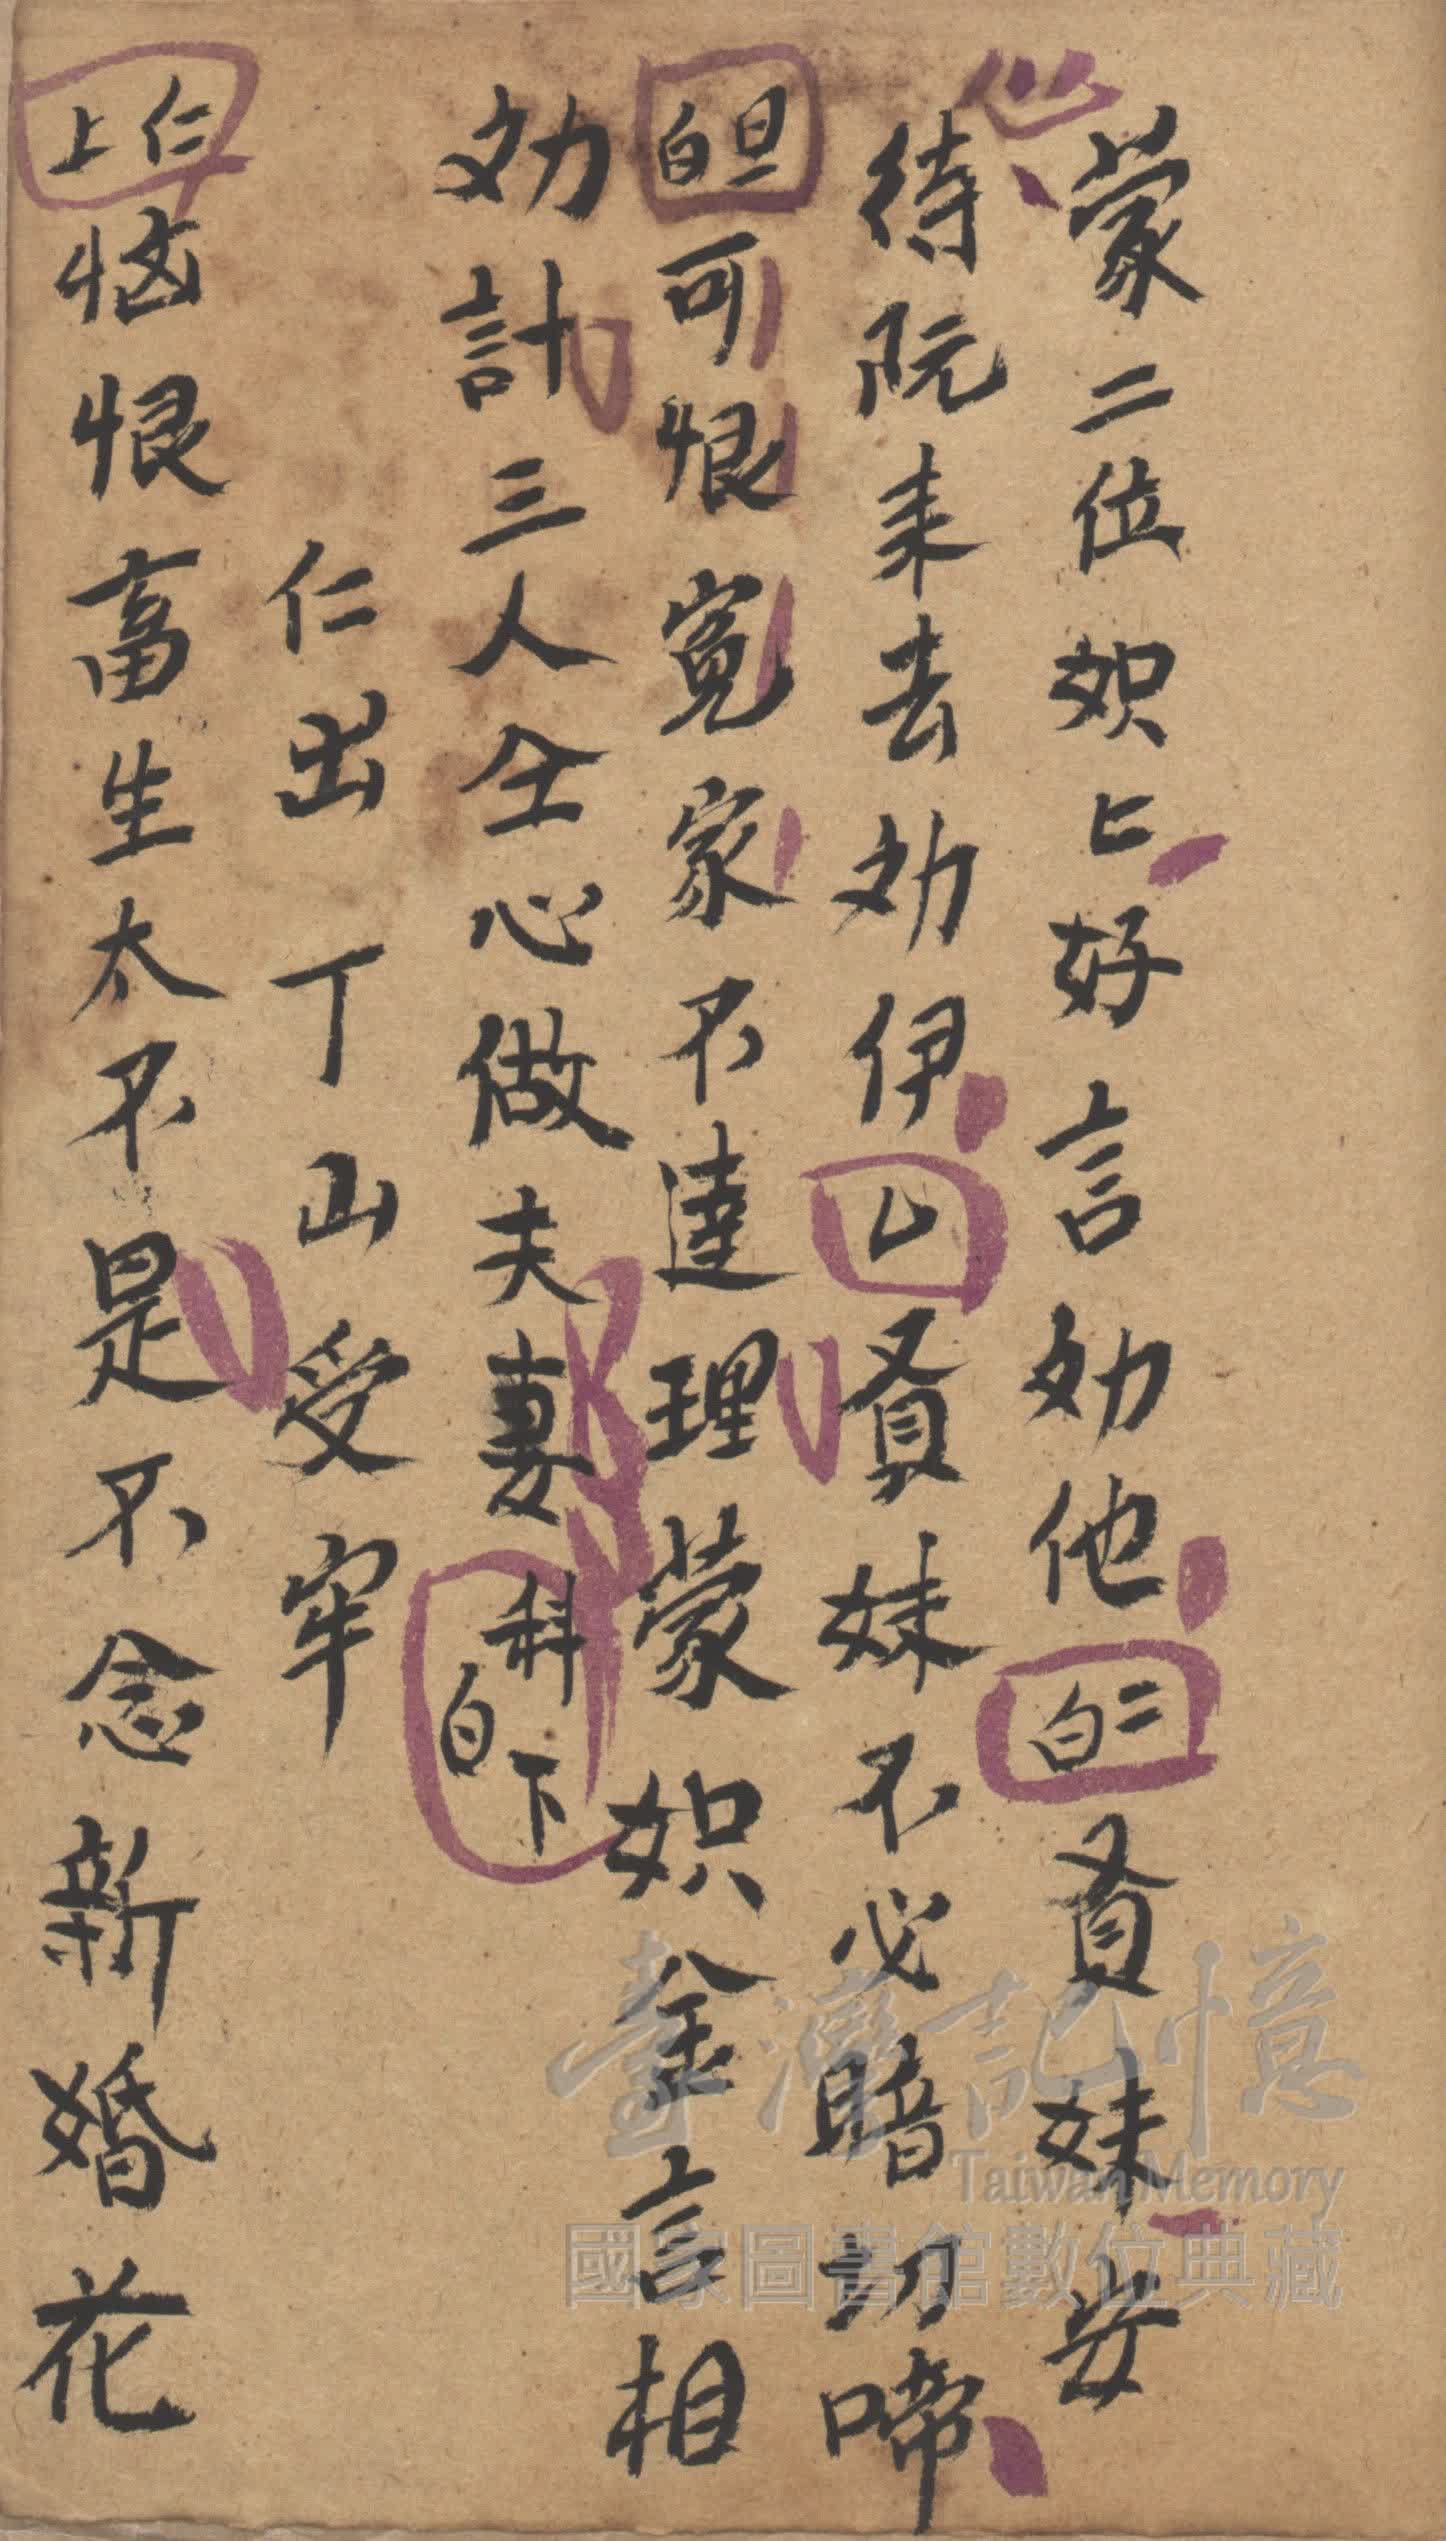 蒙二位姒匕好言効他二白𧵳妹安
待阮来去効伊𠃊𧵳妹不必暗切啼
旦白可恨寃家不達理蒙姒金言相
効計三人仝心做夫妻科下白
仁出丁山受牢
仁上恼恨畜生太不是不念新婚花
臺灣記憶
Taiwan Memory
國家圖書館數位典藏